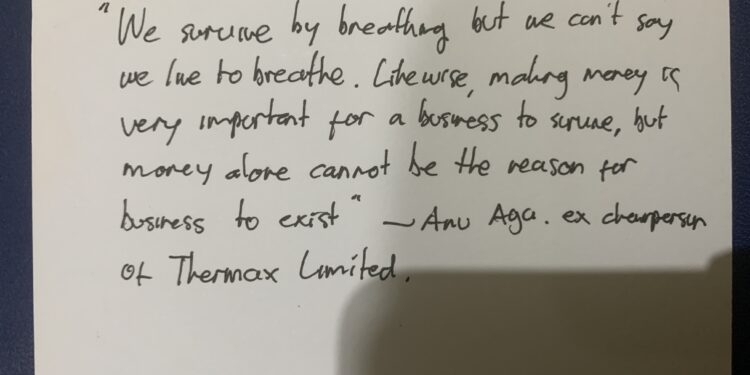 "We survive by breathing but we can't say
we live to breathe. Likewise, making money is
very important for a business to survive, but
money alone cannot be the reason for
business to exist" - Anu Aga. ex chairperson
of Thermax Limited.